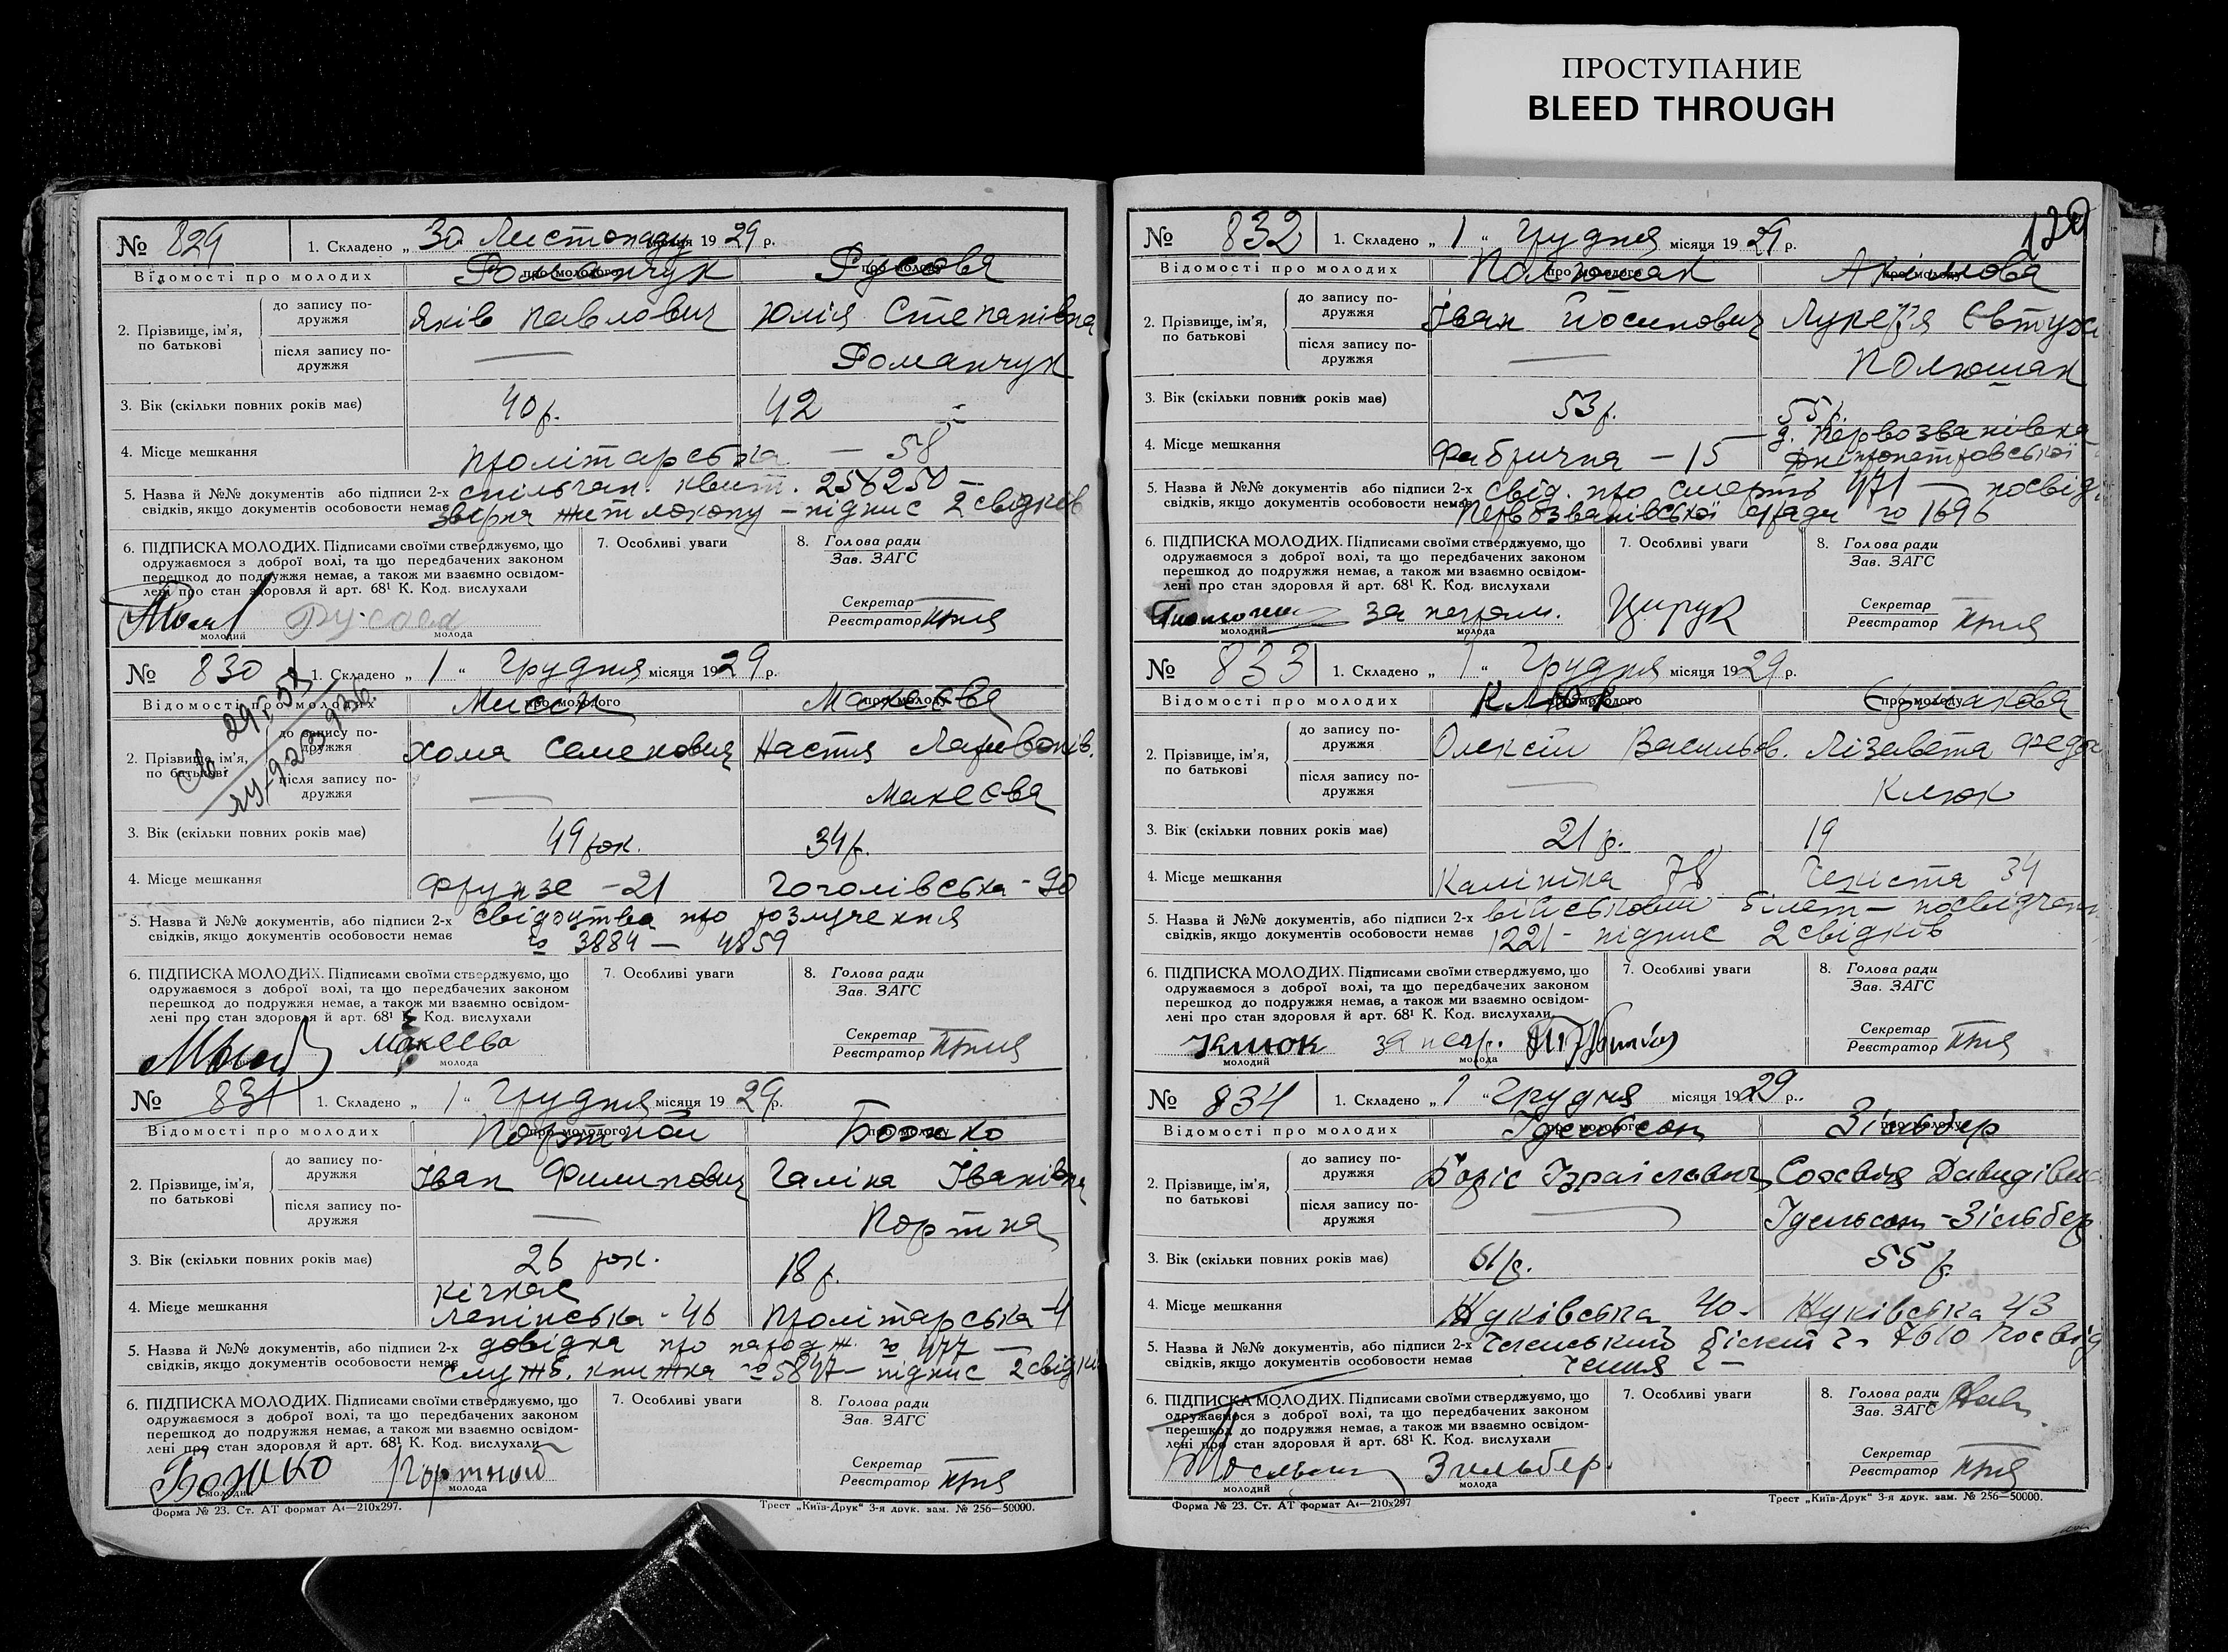 ПРОСТУПАНИЕ
BLEED THROUGH
№ 829 1. Складено „ 30 Листопаду місяця 1929 р.
Відомості про молодих про молодого Романчук про молоду Русова
2. Прізвище, ім'я, по батькові
до запису подружжя Яків Павлович Юлія Степанівна
після запису подружжя — Романчук
3. Вік (скільки повних років має) 40 р. 42
4. Місце мешкання Пролітарська — 58
5. Назва й №№ документів або підписи 2-х квит. 256250 —
свідків, якщо документів особовости немає підпис 2 свідків
6. ПІДПИСКА МОЛОДИХ. Підписами своїми стверджуємо, що
одружаємося з доброї волі, та що передбачених законом
перешкод до подружжя немає, а також ми взаємно освідом-
лені про стан здоровля й арт. 68¹ К. Код. вислухали
Русова
молодий молода
7. Особливі уваги
8. Голова ради
Зав. ЗАГС
Секретар
Реєстратор
№ 830 1. Складено „ 1 “ Грудня місяця 1929 р.
Відомості про молодих про молодого про молоду Макеєва
2. Прізвище, ім'я, по батькові
до запису подружжя Хома Семенович Настя Ларивонів.
після запису подружжя — Макеєва
3. Вік (скільки повних років має) 49 рок. 34 р.
4. Місце мешкання Фрунзе — 21 Гоголівська - 90
5. Назва й №№ документів, або підписи 2-х свідоцтва про розлучення
свідків, якщо документів особовости немає № 3884 — 4859
6. ПІДПИСКА МОЛОДИХ. Підписами своїми стверджуємо, що
одружаємося з доброї волі, та що передбачених законом
перешкод до подружжя немає, а також ми взаємно освідом-
лені про стан здоровля й арт. 68¹ К. Код. вислухали
Макеева
молода
7. Особливі уваги
8. Голова ради
Зав. ЗАГС
Секретар
Реєстратор
№ 831 1. Складено „ 1 “ Грудня місяця 1929 р.
Відомості про молодих про молодого Портной про молоду Божко
2. Прізвище, ім'я, по батькові
до запису подружжя Іван Филипович Галина Іванівна
після запису подружжя — Портна
3. Вік (скільки повних років має) 26 рок. 18 р.
4. Місце мешкання Кічкас
Ленінська - 46 Пролітарська - 4
5. Назва й №№ документів, або підписи 2-х довідка про народж. № 477 —
свідків, якщо документів особовости немає служб. книжка № 5847 — підпис 2 свідків
6. ПІДПИСКА МОЛОДИХ. Підписами своїми стверджуємо, що
одружаємося з доброї волі, та що передбачених законом
перешкод до подружжя немає, а також ми взаємно освідом-
лені про стан здоровля й арт. 68¹ К. Код. вислухали
Божко Портной
молодий молода
7. Особливі уваги
8. Голова ради
Зав. ЗАГС
Секретар
Реєстратор
Форма № 23. Ст. АТ формат А₄—210х297. Трест „Київ-Друк“ 3-я друк. зам. № 256—50000.
№ 832 1. Складено „ 1 “ Грудня місяця 1929 р.
Відомості про молодих про молодого Полюшак про молоду Акімова
2. Прізвище, ім'я, по батькові
до запису подружжя Іван Йосипович Євтух
після запису подружжя — Полюшак
3. Вік (скільки повних років має) 53 р. 55 р.
4. Місце мешкання Фабрична — 15 Первозванівка
Дніпропетровської
5. Назва й №№ документів, або підписи 2-х свід. про смерть 471 — посвід
свідків, якщо документів особовости немає Первозванівської с/ради № 1696
6. ПІДПИСКА МОЛОДИХ. Підписами своїми стверджуємо, що
одружаємося з доброї волі, та що передбачених законом
перешкод до подружжя немає, а також ми взаємно освідом-
лені про стан здоровля й арт. 68¹ К. Код. вислухали
за неграм. Цирук
молодий молода
7. Особливі уваги
8. Голова ради
Зав. ЗАГС
Секретар
Реєстратор
№ 833 1. Складено „ 1 “ Грудня місяця 1929 р.
Відомості про молодих про молодого Клюк про молоду
2. Прізвище, ім'я, по батькові
до запису подружжя Олексій Васильов. Лізавета Федор
після запису подружжя — Клюк
3. Вік (скільки повних років має) 21 р. 19
4. Місце мешкання Калініна 78 Чекіста 34
5. Назва й №№ документів, або підписи 2-х військовий білет — посвідчен
свідків, якщо документів особовости немає 1221 — підпис 2 свідків
6. ПІДПИСКА МОЛОДИХ. Підписами своїми стверджуємо, що
одружаємося з доброї волі, та що передбачених законом
перешкод до подружжя немає, а також ми взаємно освідом-
лені про стан здоровля й арт. 68¹ К. Код. вислухали
Клюк за негр.
молодий молода
7. Особливі уваги
8. Голова ради
Зав. ЗАГС
Секретар
Реєстратор
№ 834 1. Складено „ 1 “ Грудня місяця 1929 р.
Відомості про молодих про молодого Ідельсон про молоду Зільбер
2. Прізвище, ім'я, по батькові
до запису подружжя Боріс Ізраїльович Давидівна
після запису подружжя — Ідельсон - Зільбер
3. Вік (скільки повних років має) 61 р. 55 р.
4. Місце мешкання Жуківська 40 - Жуківська 43
5. Назва й №№ документів, або підписи 2-х членський білет № 7610 посвід
свідків, якщо документів особовости немає чення 2 —
6. ПІДПИСКА МОЛОДИХ. Підписами своїми стверджуємо, що
одружаємося з доброї волі, та що передбачених законом
перешкод до подружжя немає, а також ми взаємно освідом-
лені про стан здоровля й арт. 68¹ К. Код. вислухали
Зильбер.
молодий молода
7. Особливі уваги
8. Голова ради
Зав. ЗАГС
Секретар
Реєстратор
Форма № 23. Ст. АТ формат А₄—210х297 Трест „Київ-Друк“ 3-я друк. зам. № 256—50000.